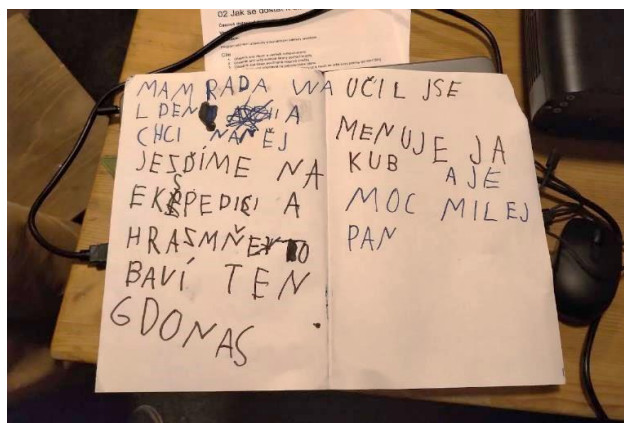 02 Jak se dostat
MAM RÁDA WA
L DEN A
CHCI NANĚJ
JEZDÍME NA
EKŠPEDICI A
HRAZMŇE TO
BAVÍ TEN
GDO NAS
UČIL JSE
MENUJE JA
KUB AJE
MOC MILEJ
PAN